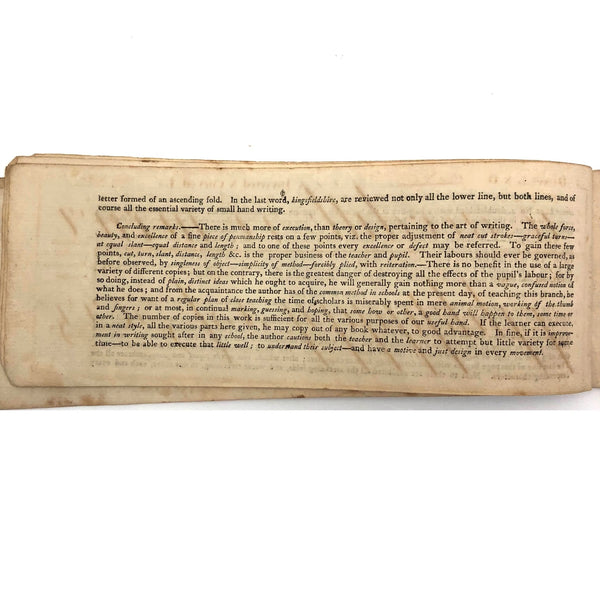 letter formed of an ascending fold. In the last word, kingsfieldshire, are reviewed not only all the lower line, but both lines, and of
course all the essential variety of small hand writing.
Concluding remarks.——There is much more of execution, than theory or design, pertaining to the art of writing. The whole force,
beauty, and excellence of a fine piece of penmanship rests on a few points, viz. the proper adjustment of neat cut strokes—graceful turns—
at equal slant—equal distance and length; and to one of these points every excellence or defect may be referred. To gain these few
points, cut, turn, slant, distance, length &c. is the proper business of the teacher and pupil. Their labours should ever be governed, as
before observed, by singleness of object—simplicity of method—forcibly plied, with reiteration.—There is no benefit in the use of a large
variety of different copies; but on the contrary, there is the greatest danger of destroying all the effects of the pupil's labour; for by
so doing, instead of plain, distinct ideas which he ought to acquire, he will generally gain nothing more than a vague, confused notion of
what he does; and from the acquaintance the author has of the common method in schools at the present day, of teaching this branch, he
believes for want of a regular plan of class teaching the time of scholars is miserably spent in mere animal motion, working of the thumb
and fingers; or at most, in continual marking, guessing, and hoping, that some how or other, a good hand will happen to them, some time or
other. The number of copies in this work is sufficient for all the various purposes of our useful hand. If the learner can execute,
in a neat style, all the various parts here given, he may copy out of any book whatever, to good advantage. In fine, if it is improve-
ment in writing sought after in any school, the author cautions both the teacher and the learner to attempt but little variety for some
time—to be able to execute that little well; to understand their subject—and have a motive and just design in every movement.